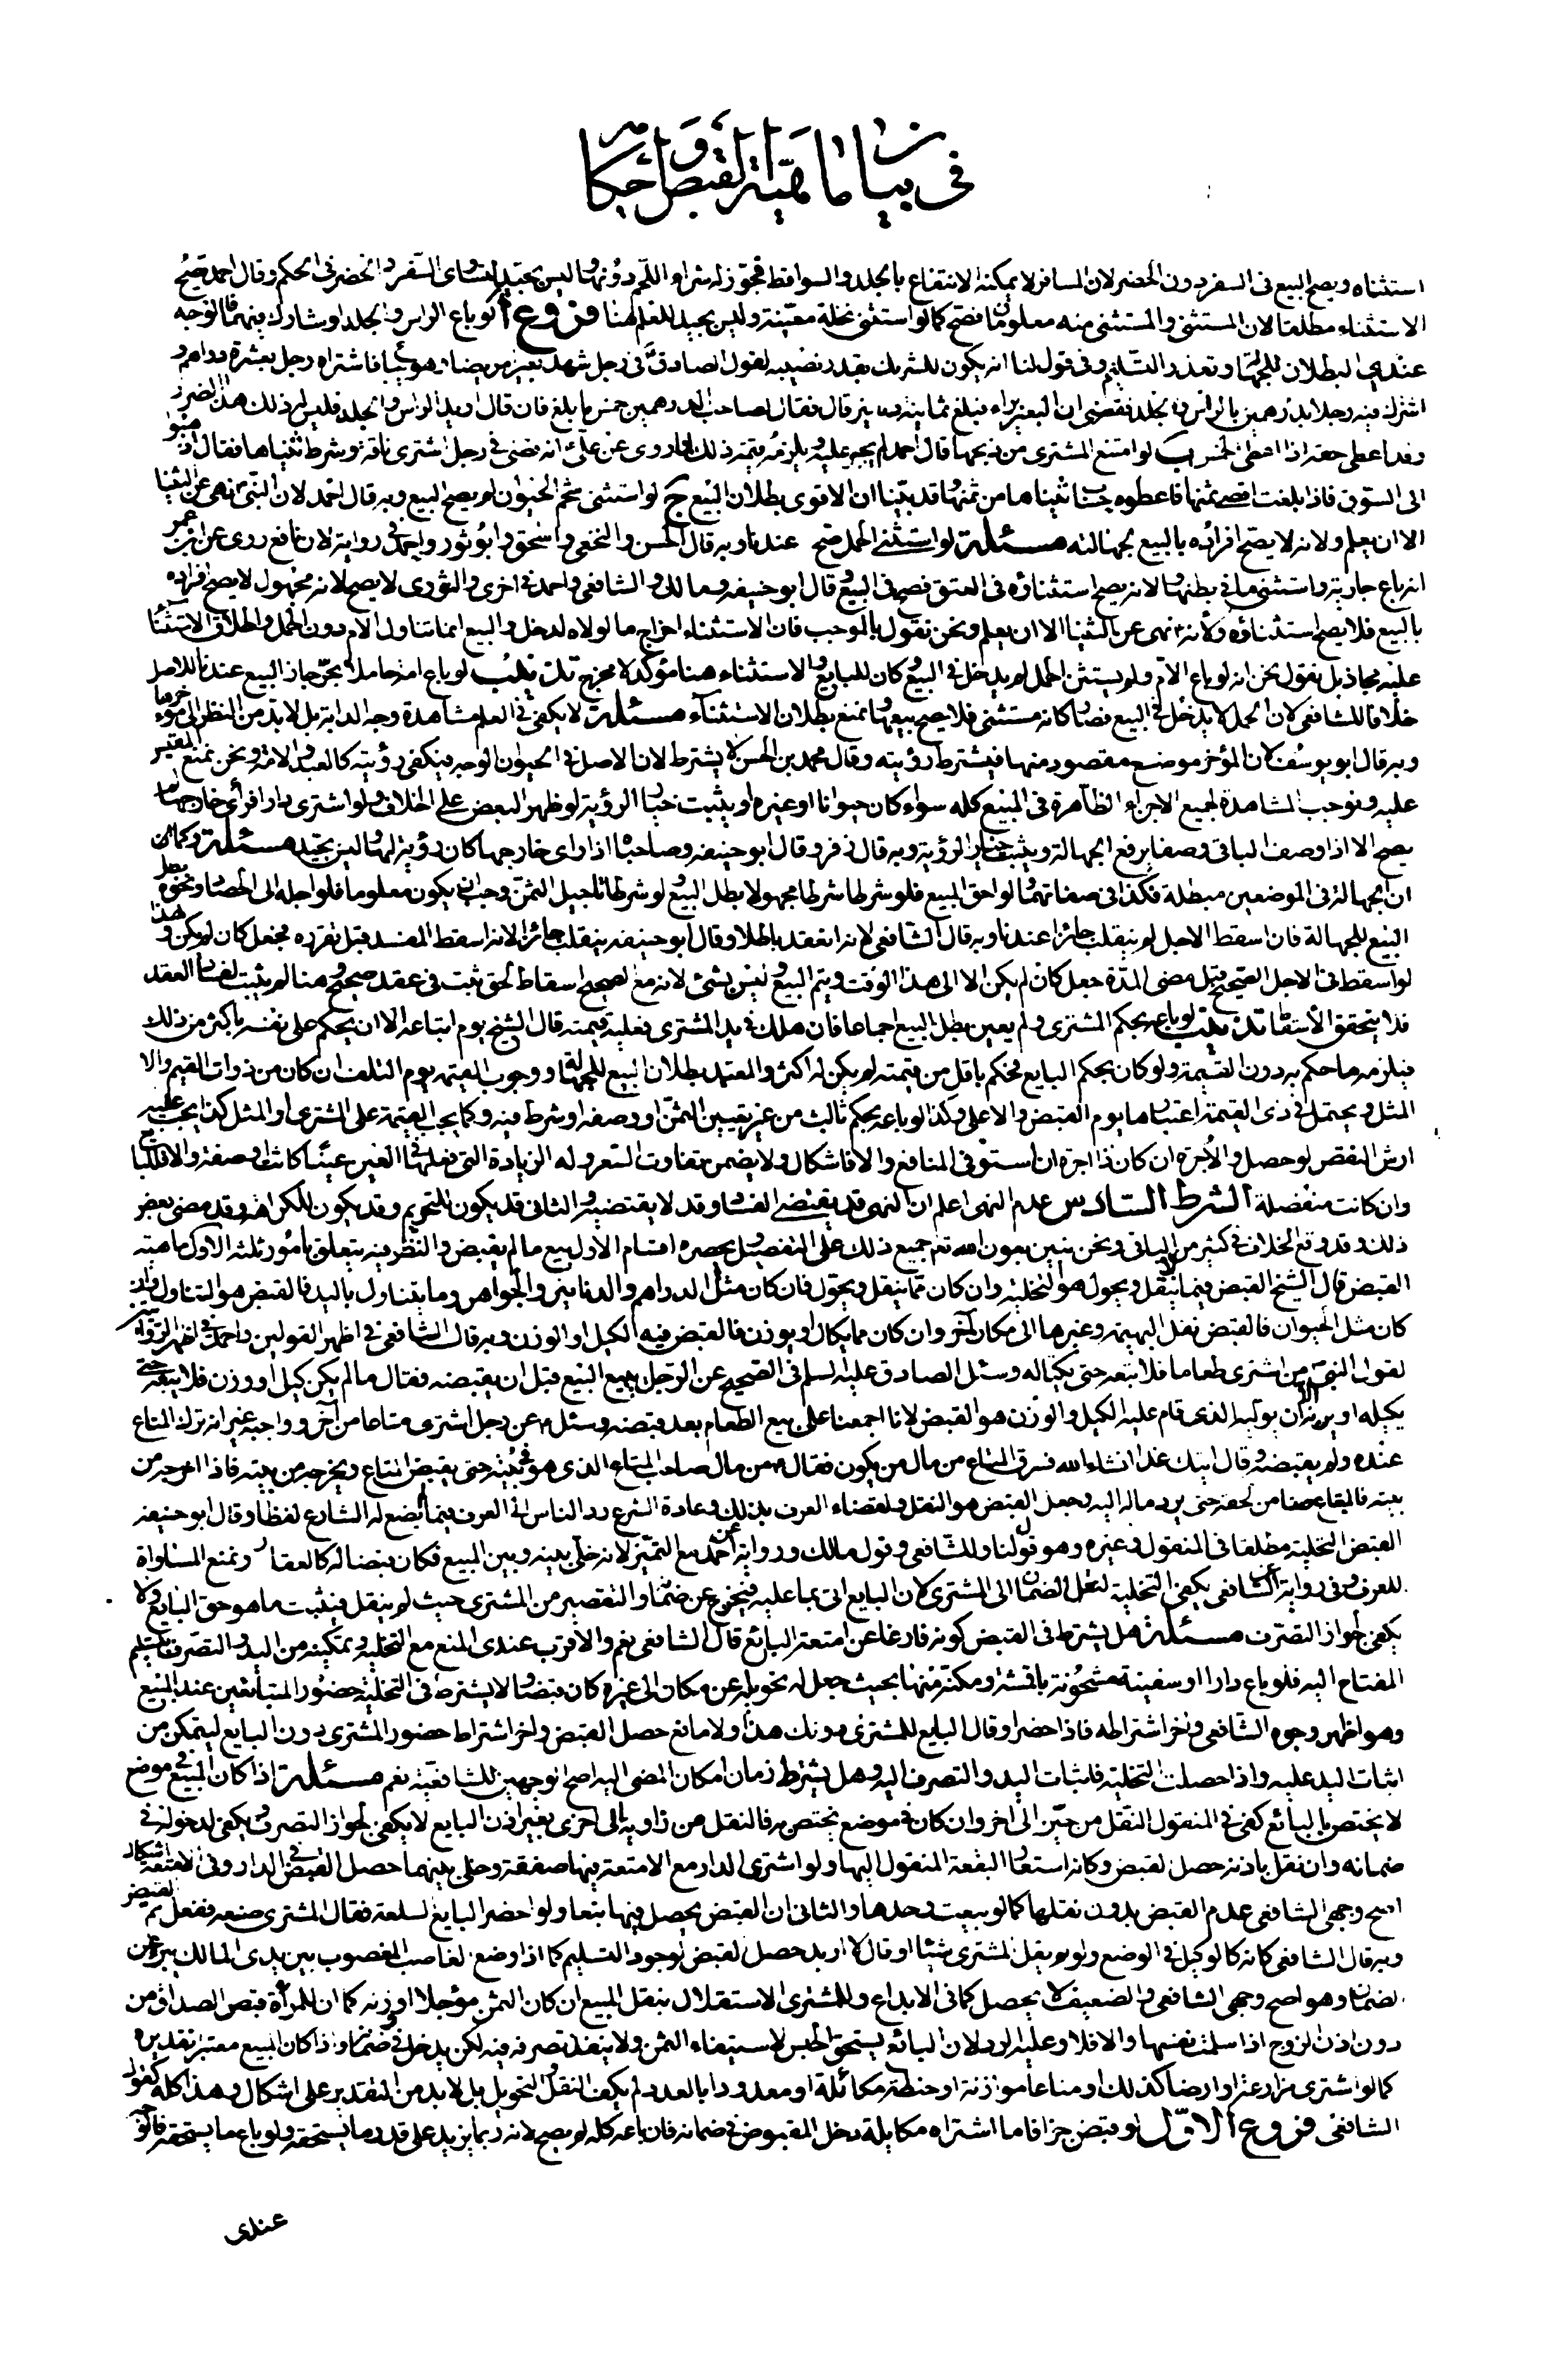 في بيان ماهية القبض واحكامه
استثناه ويصح البيع في السفر دون الحضر لان المسافر لا يمكنه الانتفاع بالجلد والسواقط فجوز له شراء اللحم دونها وليس بجيد لتساوى السفر والحضر في الحكم وقال احمد يصح
الاستثناء مطلقا لان المستثنى والمستثنى منه معلومان فصح كما لو استثنى نخلة معينة وليس بجيد للعلم هنا فروع أ لو باع الراس والجلد او شارك فيهما فالوجه
عندي البطلان للجهالة وتعذر التسليم وفي قول لنا انه يكون للشريك بقدر نصيبه لقول الصادق في رجل شهد بعيرا مريضا وهو يباع فاشتراه رجل بعشرة دراهم
اشرك فيه رجلا بدرهمين بالراس والجلد فقضى ان البعير براء فبلغ ثمانية دنانير قال فقال لصاحب الدرهمين خمس ما بلغ فان قال اريد الراس والجلد فليس له ذلك هذا الضرر
وقد اعطى حقه اذا اعطى الخمس ب لو امتنع المشترى من ذبحها قال احمد لم يجبر عليه ويلزمه قيمة ذلك لما روى عن على انه قضى في رجل اشترى ناقة وشرط ثنياها فقال اذهبوا
الى السوق فاذا بلغت اقصى ثمنها فاعطوه حساب ثنياها من ثمنها وقد بينا ان الاقوى بطلان البيع ج لو استثنى شحم الحيوان لم يصح البيع وبه قال احمد لان النبى نهى عن الثنيا
الا ان يعلم ولانه لا يصح افراده بالبيع لجهالته مسئلة لو استثنى الحمل صح عندنا وبه قال الحسن والنخعى واسحق وابو ثور واحمد في رواية لان نافع روى عن ابن عمر
انه باع جارية واستثنى ما في بطنها ولانه يصح استثناؤه في العتق فصح في البيع وقال ابو حنيفه ومالك والشافعى واحمد في اخرى والثورى لا يصح لانه مجهول لا يصح افراده
بالبيع فلا يصح استثناؤه ولانه نهى عن الثنيا الا ان يعلم ونحن نقول بالموجب فان الاستثناء اخراج ما لولاه لدخل والبيع انما تناول الام دون الحمل واطلاق الاستثناء
عليه مجاز بل نقول نحن انه لو باع الام ولم يستثن الحمل لم يدخل في البيع وكان للبايع والاستثناء هنا مؤكد لا مخرج تذنيب لو باع امة حاملا بحر جاز البيع عندنا للاصل
خلافا للشافعى لان الحمل لا يدخل في البيع فصار كانه مستثنى فلا يصح بيعها ونمنع بطلان الاستثناء مسئلة لا يكفى في العلم مشاهدة وجه الدابة بل لا بد من النظر الى مؤخرها
وبه قال ابو يوسف لان المؤخر موضع مقصود منها فيشترط رؤيته وقال محمد بن الحسن لا يشترط لان الاصل في الحيوان الوجه فيكفى رؤيته كالعبد والامة ونحن نمنع المقيس
عليه ونوجب المشاهدة لجميع الاجزاء الظاهرة في المبيع كله سواء كان حيوانا او غيره او يثبت خيار الرؤية لو ظهر البعض على الخلاف ولو اشترى دارا فرأى خارجها لم
يصح الا اذا وصف الباقى وصفا يرفع الجهالة ويثبت خيار الرؤية وبه قال زفر وقال ابو حنيفه وصاحباه اذا راى خارجها كان رؤية لها وليس بجيد مسئلة وكما
ان الجهالة في الموضعين مبطلة فكذا في صفاتهما ولواحق المبيع فلو شرطا شرطا مجهولا بطل البيع ولو شرطا تاجيل الثمن وجب ان يكون معلوما فلو اجله الى الحصاد ونحوه بطل
البيع للجهالة فان اسقط الاجل لم ينقلب جائزا عندنا وبه قال الشافعى لانه انعقد باطلا وقال ابو حنيفه ينقلب جائزا لانه اسقط المفسد قبل تقرره فجعل كان لم يكن وهذا
لو اسقط في الاجل الصحيح قبل مضى المدة جعل كان لم يكن الا الى هذا الوقت ويتم البيع وليس بشئ لانه مع الصحيح اسقاط لحق ثبت في عقد صحيح وهنا لم يثبت لفساد العقد
فلا يتحقق الاسقاط تذنيب لو باعه بحكم المشترى ولم يعين بطل البيع اجماعا فان هلك في يد المشترى فعليه قيمته قال الشيخ يوم ابتاعه الا ان يحكم على نفسه باكثر من ذلك
فيلزمه ما حكم به دون القيمة ولو كان بحكم البايع فحكم باقل من قيمته لم يكن له اكثر والمعتمد بطلان البيع للجهالة ووجوب القيمة يوم التلف ان كان من ذوات القيم والا
المثل ويحتمل في ذى القيمة اعتبارها يوم القبض والاعلى وكذا لو باعه بحكم ثالث من غير تعيين الثمن او وصفه او شرط فيه وكما يجب القيمة على المشترى او المثل كذا يجب عليه
ارش النقص لو حصل والاجرة ان كان ذا اجرة ان استوفى المنافع والا فاشكال ولا يضمن تفاوت السعر وله الزيادة التى فعلها في العين عينا كانت او صفة والا فللبايع
وان كانت منفصلة الشرط السادس عدم النهى اعلم ان النهى قد يقتضى الفساد وقد لا يقتضيه والثانى قد يكون للتحريم وقد يكون للكراهة وقد مضى بعض
ذلك وقد وقع الخلاف في كثير من الباقى ونحن نبين بعون الله تع جميع ذلك على التفصيل ويحصره اقسام الاول بيع ما لم يقبض والنظر فيه يتعلق بامور ثلثة الاول ماهية
القبض قال الشيخ القبض فيما لا ينقل ويحول هو التخلية وان كان مما ينقل ويحول فان كان مثل الدراهم والدنانير والجواهر وما يتناول باليد فالقبض هو التناول وان
كان مثل الحيوان فالقبض نقل البهيمة وغيرها الى مكان آخر وان كان مما يكال او يوزن فالقبض فيه الكيل او الوزن وبه قال الشافعى في اظهر القولين واحمد في اظهر الرواتين
لقول النبى من اشترى طعاما فلا يبعه حتى يكتاله وسئل الصادق عليه السلم في الصحيح عن الرجل يبيع البيع قبل ان يقبضه فقال ما لم يكن كيل او وزن فلا يبعه حتى
يكيله او يزنه الا ان يوليه الذى قام عليه الكيل والوزن هو القبض لانا اجمعنا على بيع الطعام بعد قبضه وسئل عن رجل اشترى متاعا من آخر وواجبه غير انه ترك المتاع
عنده ولم يقبضه وقال اتيك غدا انشاء الله فسرق المتاع من مال من يكون فقال من مال صاحب المتاع الذى هو في بيته حتى يقبض المتاع ويخرجه من بيته فاذا اخرجه من
بيته فالمبتاع ضامن لحقه حتى يرد ماله اليه وجعل القبض هو النقل ولقضاء العرف بذلك وعادة الشرع رد الناس الى العرف فيما لم يضع له الشارع لفظا وقال ابو حنيفه
القبض التخلية مطلقا في المنقول وغيره وهو قول لنا وللشافعى وقول مالك ورواية عن احمد مع التميز لانه خلى بينه وبين المبيع فكان قبضا له كالعقار ونمنع المساواة
للعرف وفي رواية عن الشافعى يكفى التخلية لنقل الضمان الى المشترى لان البايع اتى بما عليه فيخرج عن ضمانه والتقصير من المشترى حيث لم ينقل فيثبت ما هو حق البايع ولا
يكفى لجواز التصرف مسئلة هل يشترط في القبض كونه فارغا عن امتعة البائع قال الشافعى نعم والاقرب عندى المنع مع التخلية وتمكينه من اليد والتصرف بتسليم
المفتاح اليه فلو باع دارا او سفينة مشحونة باقمشة ومكنه منها بحيث جعل له تحويله من مكان الى غيره كان قبضا ولا يشترط في التخلية حضور المتبايعين عند المبيع
وهو اظهر وجوه الشافعى والاخر اشتراطه فاذا حضرا وقال البايع للمشترى دونك هذا ولا مانع حصل القبض والاخر اشتراط حضور المشترى دون البايع ليتمكن من
اثبات اليد عليه واذا حصلت التخلية فاثبات اليد والتصرف اليه وهل يشترط زمان امكان المضى اليه اصح الوجهين للشافعية نعم مسئلة اذا كان المبيع في موضع
لا يختص بالبائع كفى في المنقول النقل من حيز الى اخر وان كان في موضع يختص به فالنقل من زاوية الى اخرى بغير اذن البايع لا يكفى لجواز التصرف ويكفى لدخوله في
ضمانه وان نقل باذنه حصل القبض وكانه استعار البقعة المنقول اليها ولو اشترى الدار مع الامتعة فيها صفقة وخلى بينهما حصل القبض في الدار وفي الامتعة اشكال
اصح وجهى الشافعى عدم القبض بدون نقلها كما لو بيعت وحدها والثانى ان القبض يحصل فيها تبعا ولو احضر البايع السلعة فقال المشترى ضعه ففعل تم القبض
وبه قال الشافعى كانه كالوكيل في الوضع ولو لم يقل المشترى شيئا او قال لا اريد حصل القبض لوجود التسليم كما اذا وضع الغاصب المغصوب بين يدى المالك يبرء عن
الضمان وهو اصح وجهى الشافعى والضعيف لا يحصل كما في الايداع وللمشترى الاستقلال بنقل المبيع ان كان الثمن مؤجلا او وزنه كما ان للمرأة قبض الصداق من
دون اذن الزوج اذا سلمت نفسها والا فلا وعليه الرد لان البائع يستحق الحبس لاستيفاء الثمن ولا ينفذ تصرفه فيه لكن يدخل في ضمانه واذا كان المبيع معتبرا تقديره
كما لو اشترى مزارعة او ارضا كذلك او متاعا موازنة او حنطة مكائلة او معدودا بالعدد لم يكف النقل والتحويل بل لا بد من التقدير على اشكال وهذا كله كقول
الشافعى فروع الاول لو قبض جزافا ما اشتراه مكايلة دخل المقبوض في ضمانه فان باعه كله لم يصح لانه ربما يزيد على قدر ما يستحقه ولو باع ما يستحقه فالوجه
عندى